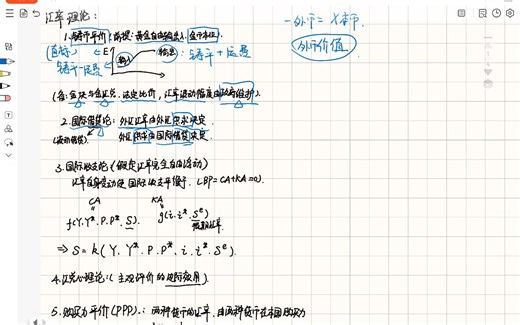 汇率理论：
一外币 = X本币.
外币价值
1. 铸币平价(前提：黄金自由输出入, 金本位).
(直标) E↑ 输入 输出：铸币平+运费
铸币平-运费
2. 国际借贷论：外汇汇率由外汇供求决定.
(流动借贷) 外汇供求由国际借贷决定.
3. 国际收支论(假定汇率完全自由浮动)
汇率自身变动使国际收支平衡. (BP=CA+KA=0).
CA KA
f(Y,Y*,P,P*,S) g(i,i*,Sᵉ)
预期汇率
⇒ S = k(Y, Y*, P, P*, i, i*, Sᵉ).
4. 汇兑心理论：(主观评价的边际效用)
5. 购买力平价(PPP).：两种货币的汇率, 由两种货币在本国购买力